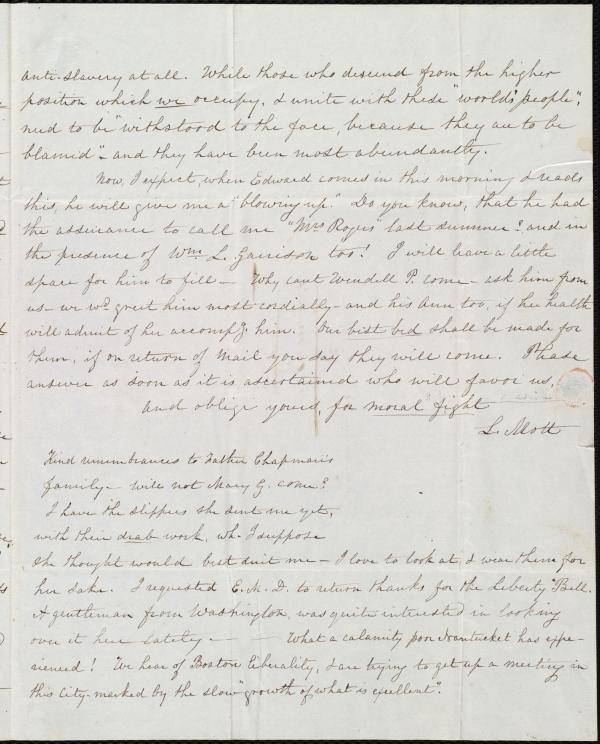 anti-slavery at all. While those who descend from the higher
position which we occupy, & unite with these "world's people",
need to be "withstood to the face, because they are to be
blamed" - and they have been most abundantly.
Now, I expect, when Edward comes in this morning & reads
this, he will give me a "blowing up." Do you know, that he had
the assurance to call me "Mrs Rogers" last summer? and in
the presence of Wm. L. Garrison too! I will leave a little
space for him to fill - Why cant Wendell P. come - ask him from
us - we wd. greet him most cordially - and his Ann too, if her health
will admit of her accompg. him. Our best bed shall be made for
them, if on return of mail you say they will come. Please
answer as soon as it is ascertained who will favor us,
and oblige yours, for moral fight
L. Mott
Kind remembrances to Father Chapman's
family - will not Mary G. come?
I have the slippers she sent me yet,
with their drab work, wh. I suppose
she thought would best suit me - I love to look at, & wear them for
her sake. I requested E. M. D. to return thanks for the Liberty Bell.
A gentleman from Washington, was quite interested in looking
over it here lately. - - What a calamity poor Nantucket has expe-
rienced! We hear of Boston liberality, & are trying to get up a meeting in
this City - marked by the slow "growth of what is excellent".